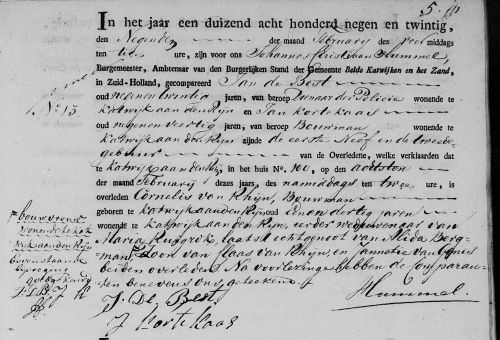 5.
In het jaar een duizend acht honderd negen en twintig,
den Negenden der maand February des voor middags
ten tien ure, zijn voor ons Johannes Christiaan Hummel,
Burgemeester, Ambtenaar van den Burgerlijken Stand der Gemeente Beide Katwijken en het Zand,
in Zuid-Holland, gecompareerd Jan de Best
oud negenentwintig jaren, van beroep Dienaar der Policie wonende te
Katwijk aan den Rijn en Jan Kortekaas
oud negenenveertig jaren, van beroep Bouwman wonende te
Katwijk aan den Rijn zijnde de eerste Neef en de tweede
gebuur van de Overledene, welke verklaarden dat
te Katwijk aan den Rijn, in het huis No. 100, op den achtsten
der maand February dezes jaars, des namiddags ten twee ure, is
overleden Cornelis van Rhijn, Bouwman
geboren te Katwijk aan den Rijn oud een en dertig jaren
wonende te Katwijk aan den Rijn, eerder weduwenaar van
Maria laatst echtgenoot van Alida Berg-
man, Zoon van Claas van Rhijn, en Jannetje van
beiden overleden. Na voorlezing hebben de Comparan-
ten benevens ons geteekend
No. 15
bouwvrouw
wonende te Kat-
wijk aan den Rijn
bovenstaande
goedgekeurd
J. D. B. J. K
H
J. De Best
J Kortekaas
Hummel